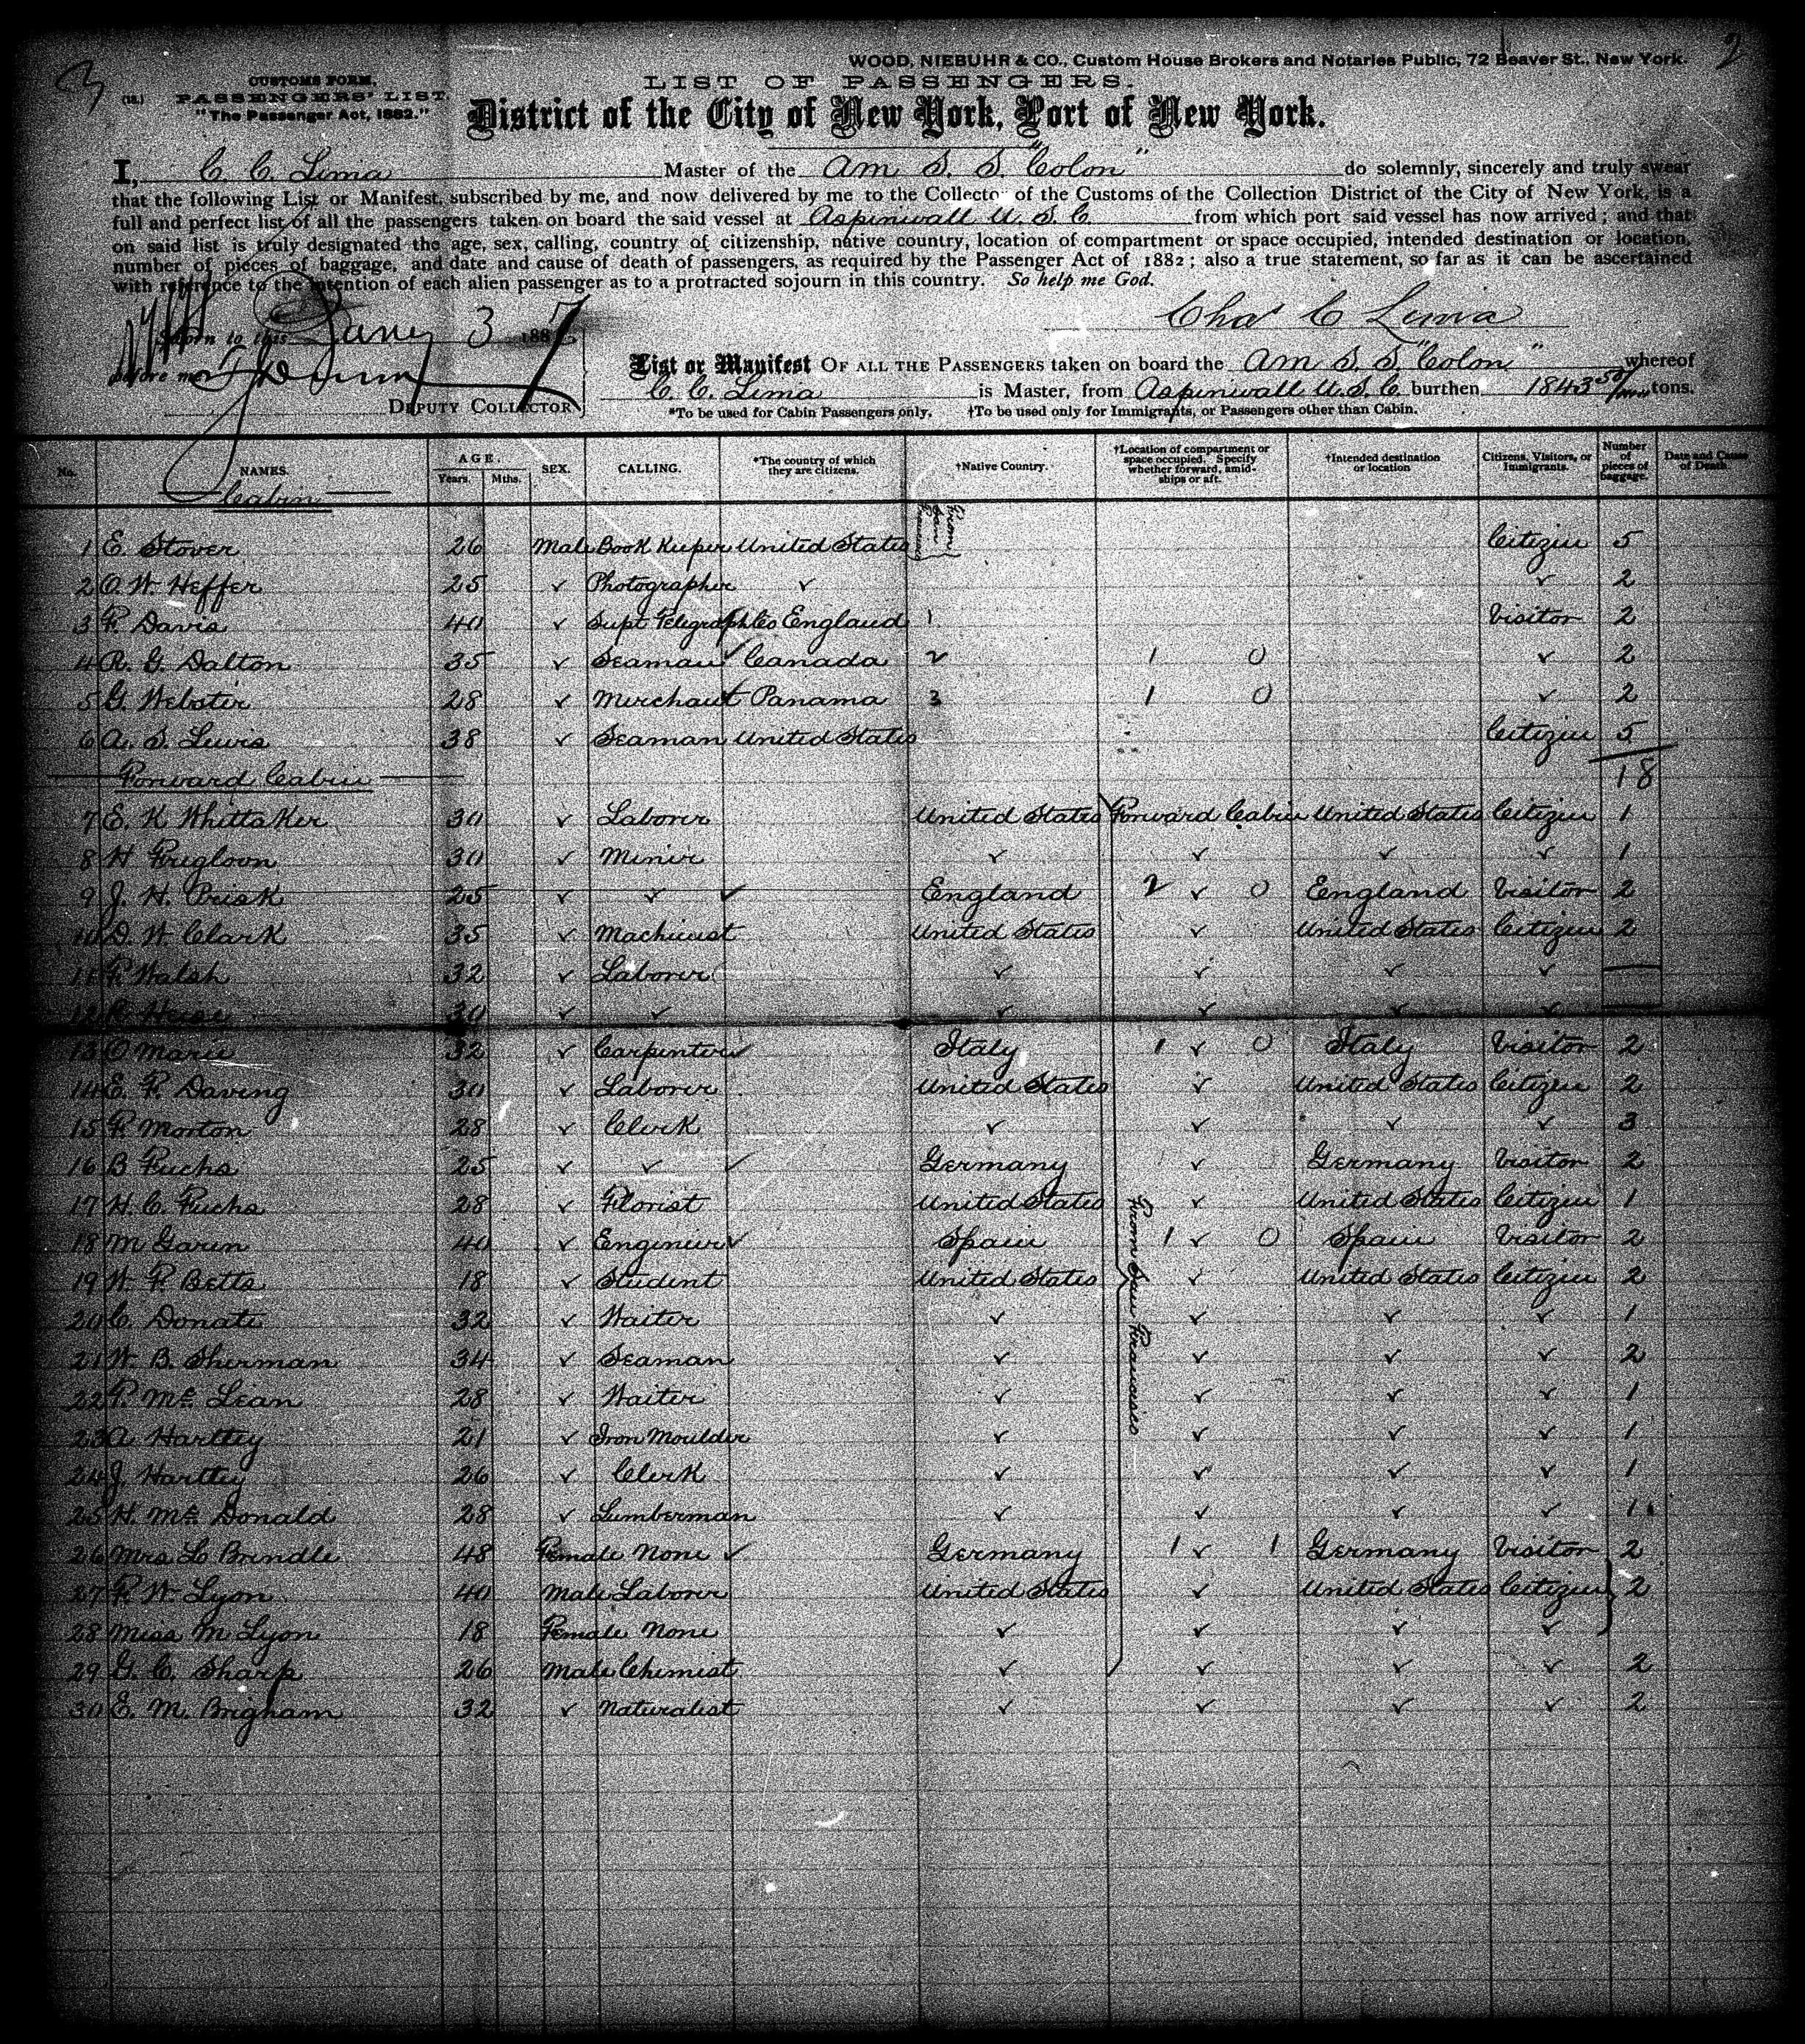 3
2
WOOD, NIEBUHR & CO., Custom House Brokers and Notaries Public, 72 Beaver St., New York.
CUSTOMS FORM.
LIST OF PASSENGERS.
PASSENGERS' LIST.
"The Passenger Act, 1882."
District of the City of New York, Port of New York.
I, C. C. Lima Master of the Am S. S. "Colon" do solemnly, sincerely and truly swear
that the following List or Manifest, subscribed by me, and now delivered by me to the Collector of the Customs of the Collection District of the City of New York, is a
full and perfect list of all the passengers taken on board the said vessel at Aspinwall U. S. C. from which port said vessel has now arrived; and that
on said list is truly designated the age, sex, calling, country of citizenship, native country, location of compartment or space occupied, intended destination or location,
number of pieces of baggage, and date and cause of death of passengers, as required by the Passenger Act of 1882; also a true statement, so far as it can be ascertained
with reference to the intention of each alien passenger as to a protracted sojourn in this country. So help me God.
Chas C Lima
Sworn to this Jany 3 1887
before me
DEPUTY COLLECTOR
List or Manifest OF ALL THE PASSENGERS taken on board the Am S. S. "Colon" whereof
C. C. Lima is Master, from Aspinwall U. S. C. burthen 1843 tons.
*To be used for Cabin Passengers only. †To be used only for Immigrants, or Passengers other than Cabin.
No. NAMES. AGE. Years. Mths. SEX. CALLING. *The country of which they are citizens. †Native Country. †Location of compartment or space occupied. Specify whether forward, amidships or aft. †Intended destination or location Citizens, Visitors, or Immigrants. Number of pieces of baggage. Date and Cause of Death.
Cabin
1 E. Stover 26 Male Book Keeper United States Citizen 5
2 O. W. Heffer 25 ✓ Photographer ✓ ✓ 2
3 F. Davis 40 ✓ Supt Telegraph Co England 1 Visitor 2
4 R. G. Dalton 35 ✓ Seaman ✓ Canada 2 1 0 ✓ 2
5 G. Webster 28 ✓ Merchant ✓ Panama 3 1 0 ✓ 2
6 A. S. Lewis 38 ✓ Seaman United States Citizen 5
Forward Cabin 18
7 E. K Whittaker 30 ✓ Laborer United States Forward Cabin United States Citizen 1
8 H 30 ✓ Miner ✓ ✓ ✓ ✓ 1
9 J. H. Prisk 25 ✓ ✓ ✓ England 2 ✓ 0 England Visitor 2
10 D. W Clark 35 ✓ Machinist United States ✓ United States Citizen 2
11 F. Walsh 32 ✓ Laborer ✓ ✓ ✓ ✓ —
12 Heise 30 ✓ ✓ ✓ ✓ ✓ ✓ —
13 O Marie 32 ✓ Carpenter ✓ Italy 1 ✓ 0 Italy Visitor 2
14 E. F. Daving 30 ✓ Laborer United States ✓ United States Citizen 2
15 F. Morton 28 ✓ Clerk ✓ ✓ ✓ ✓ 3
16 B Fuchs 25 ✓ ✓ ✓ Germany ✓ Germany Visitor 2
17 H. C. Fuchs 28 ✓ Florist United States ✓ United States Citizen 1
18 M Garin 40 ✓ Engineer ✓ Spain 1 ✓ 0 Spain Visitor 2
19 W F. Betts 18 ✓ Student United States ✓ United States Citizen 2
20 C. Donati 32 ✓ Waiter ✓ ✓ ✓ ✓ 1
21 W. B. Sherman 34 ✓ Seaman ✓ ✓ ✓ ✓ 2
22 P. Mc Lean 28 ✓ Waiter ✓ ✓ ✓ ✓ 1
23 A Hartley 21 ✓ Iron Moulder ✓ ✓ ✓ ✓ 1
24 J. Hartley 26 ✓ Clerk ✓ ✓ ✓ ✓ 1
25 H. Mc Donald 28 ✓ Lumberman ✓ ✓ ✓ ✓ 1
26 Mrs L Brindle 48 Female None ✓ Germany 1 ✓ 1 Germany Visitor 2
27 F. W. Lyon 40 Male Laborer United States ✓ United States Citizen 2
28 Miss M Lyon 18 Female None ✓ ✓ ✓ ✓
29 G. C. Sharp 26 Male Chemist ✓ ✓ ✓ ✓ 2
30 E. M. Brigham 32 ✓ Naturalist ✓ ✓ ✓ ✓ 2
From San Francisco